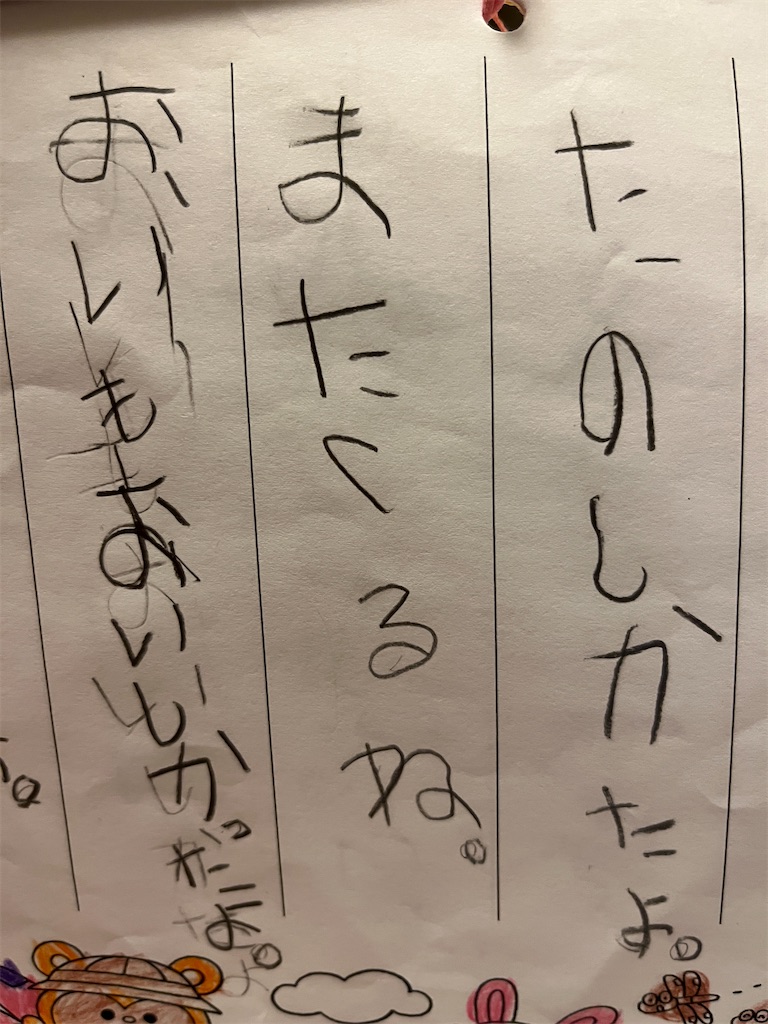 たのしかたよ。
またくるね。
おいもおいしかったよ。